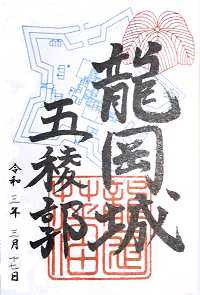 龍岡城
五稜郭
令和三年三月十七日